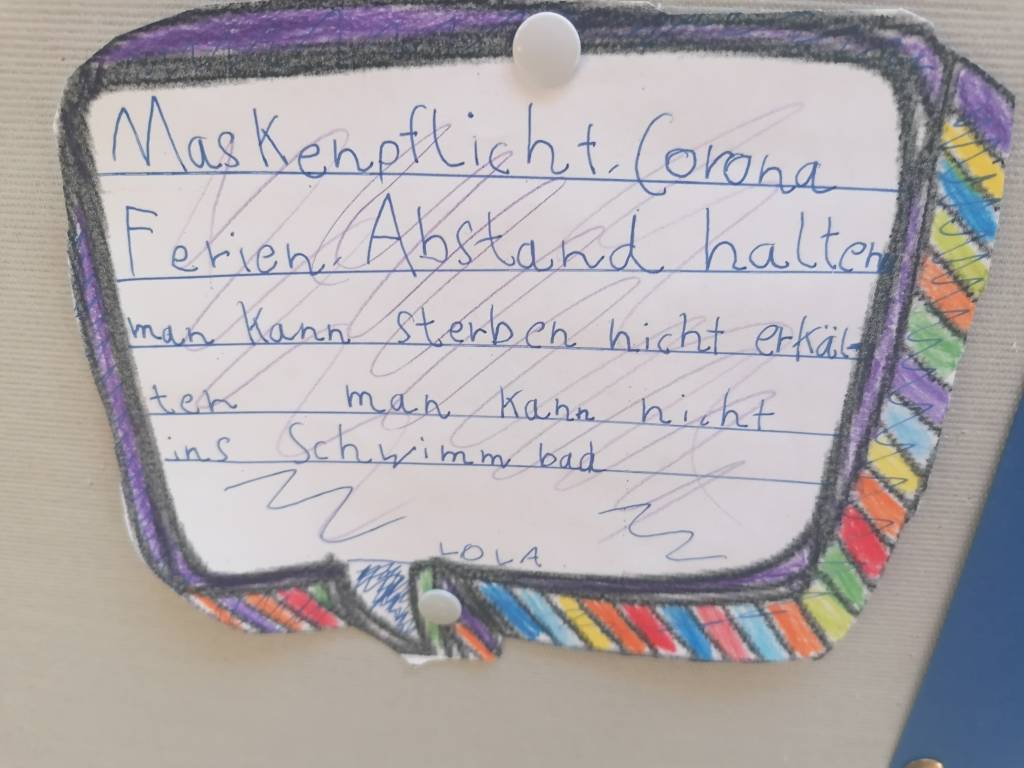 Maskenpflicht. Corona
Ferien. Abstand halten
man kann sterben nicht erkäl-
ten man kann nicht
ins Schwimmbad
LOLA